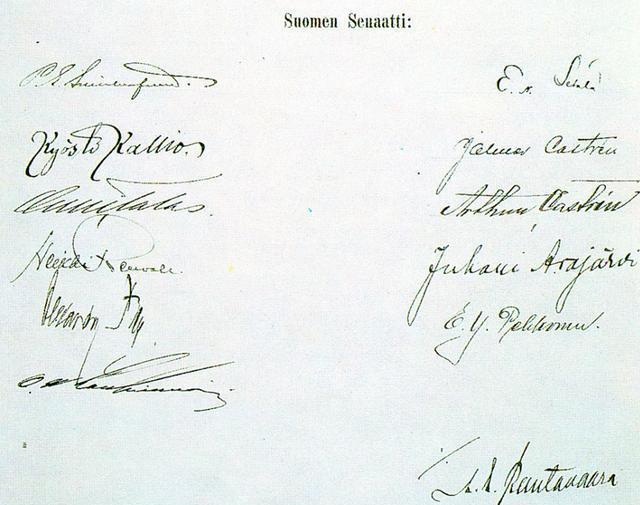 Suomen Senaatti:
P. E. Svinhufvud.
E. N. Setälä
Kyösti Kallio.
Jalmar Castrén
Onni Talas.
Arthur Castrén
Heikki Renvall.
Juhani Arajärvi
Alexander Frey
E. Y. Pehkonen.
O. W. Louhivuori
A. E. Rautavaara